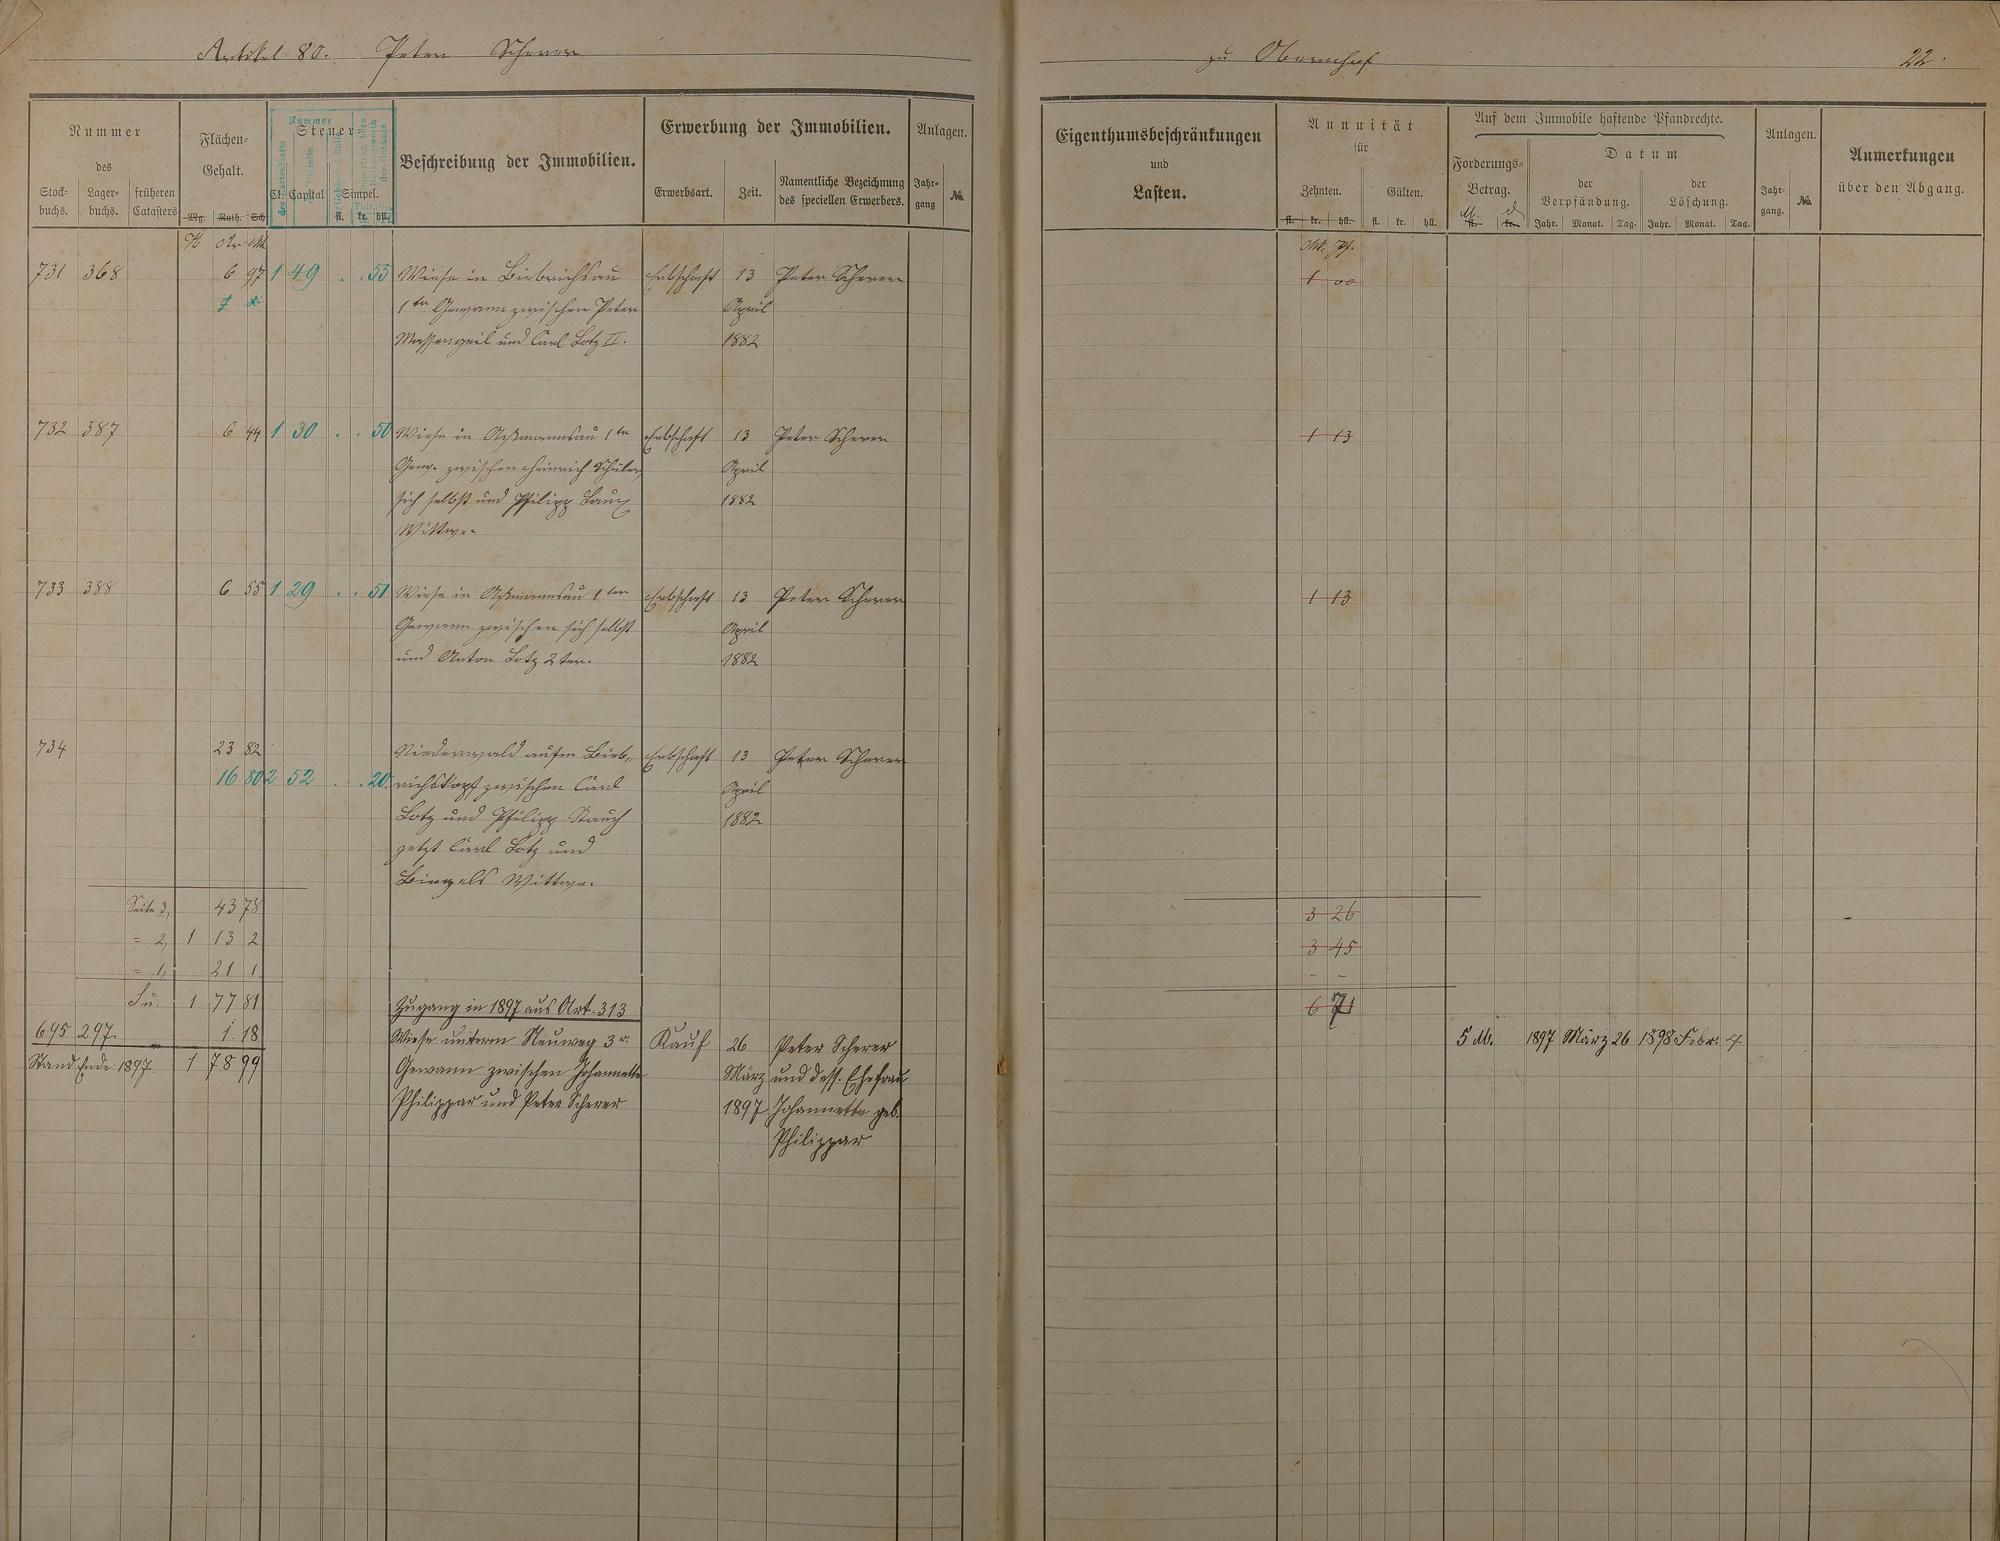 Artikel 80. Peter Scherer
zu Obernhof
22.
Nummer
des
Stock-
buchs.
Lager-
buchs.
früheren
Catasters
Flächen-
Gehalt.
Mg. Ruth. Sch
Nummer
Steuer-
Cl. Capital
Simpel.
fl. kr. hll.
Beschreibung der Immobilien.
Erwerbung der Immobilien.
Erwerbsart.
Zeit.
Namentliche Bezeichnung
des speciellen Erwerbers.
Anlagen.
Jahr-
gang
No.
Eigenthumsbeschränkungen
und
Lasten.
Annuität
für
Zehnten.
Gülten.
fl. kr. hll. fl. kr. hll.
Auf dem Immobile haftende Pfandrechte.
Forderungs-
Betrag.
M. d
fl. kr.
Datum
der
Verpfändung.
der
Löschung.
Jahr. Monat. Tag. Jahr. Monat. Tag.
Anlagen.
Jahr-
gang.
No.
Anmerkungen
über den Abgang.
H Ar M
M. Pf.
731 368 6 97 1 49 . . 55 Wiese in Biebrichsau Erbschaft 13 Peter Scherer 1 00
1ter Gewann zwischen Peter April
Massengeil und Carl Lotz II. 1882
732 387 6 44 1 30 . . 50 Wiese in Aßmannsau 1ter Erbschaft 13 Peter Scherer 1 13
Gew. zwischen Heinrich Schuler, April
sich selbst und Philipp Laux 1882
Wittwe.
733 388 6 55 1 29 . . 51 Wiese in Aßmannsau 1ter Erbschaft 13 Peter Scherer 1 13
Gewann zwischen sich selbst April
und Anton Lotz 2ter. 1882
734 23 82 Niederwald aufm Bieb- Erbschaft 13 Peter Scherer
16 80 2 52 . . 20. richskopf zwischen Carl April
Lotz und Philipp Stauch 1882
jetzt Carl Lotz und
Bingels Wittwe.
Seite 3, 43 78 3 26
= 2, 1 13 2 3 45
= 1, 21 1 - -
Su. 1 77 81 Zugang in 1897 aus Art. 313 6 71
695 297. 1.18 Wiese unterm Neuweg 3r. Kauf 26 Peter Scherer 5 M. 1897 März 26 1898 Febr. 4
Stand Ende 1897. 1 78 99 Gewann zwischen Johannette März und dess. Ehefrau
Philippar und Peter Scherer 1897 Johannette geb.
Philippar